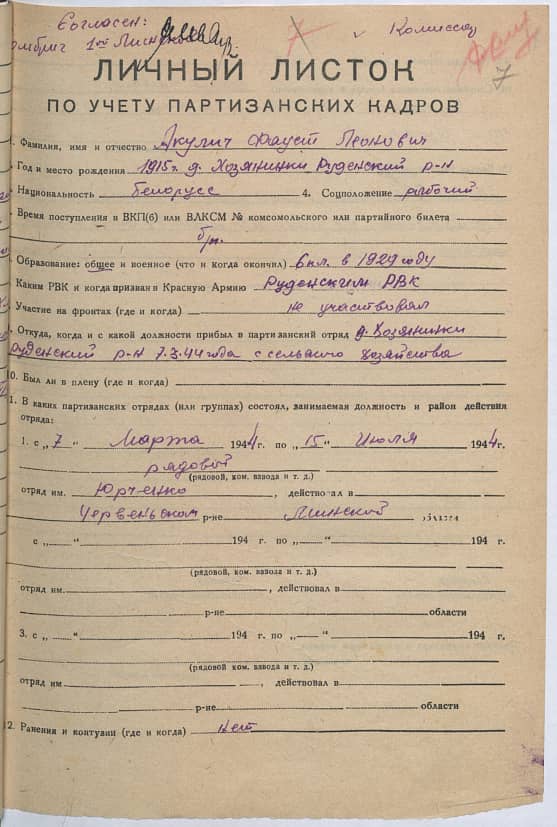 Согласен: Комиссар
Комбриг 1ой Минской
7
7
ЛИЧНЫЙ ЛИСТОК
ПО УЧЕТУ ПАРТИЗАНСКИХ КАДРОВ
1. Фамилия, имя и отчество Акулич Фауст Леонович
Год и место рождения 1915 г. д. Хозянинки Руденский р-н
Национальность белорусс 4. Соцположение рабочий
Время поступления в ВКП(б) или ВЛКСМ № комсомольского или партийного билета
б/п.
Образование: общее и военное (что и когда окончил) 6 кл. в 1929 году
Каким РВК и когда призван в Красную Армию Руденским РВК
Участие на фронтах (где и когда) не участвовал
Откуда, когда и с какой должности прибыл в партизанский отряд д. Хозянинки
Руденский р-н 7.3.44 года с сельского хозяйства
10. Был ли в плену (где и когда)
11. В каких партизанских отрядах (или группах) состоял, занимаемая должность и район действия
отряда:
1. с „7“ Марта 1944 г. по „15“ Июля 1944 г.
рядовой
(рядовой, ком. взвода и т. д.)
отряд им. Юрченко, действовал в
Червеньском р-не Минской области
с „ “ 194 г. по „ “ 194 г.
(рядовой, ком. взвода и т. д.)
отряд им. , действовал в
р-не области
3. с „ “ 194 г. по „ “ 194 г.
(рядовой ком. взвода и т. д.)
отряд им. , действовал в
р-не области
12. Ранения и контузии (где и когда) нет